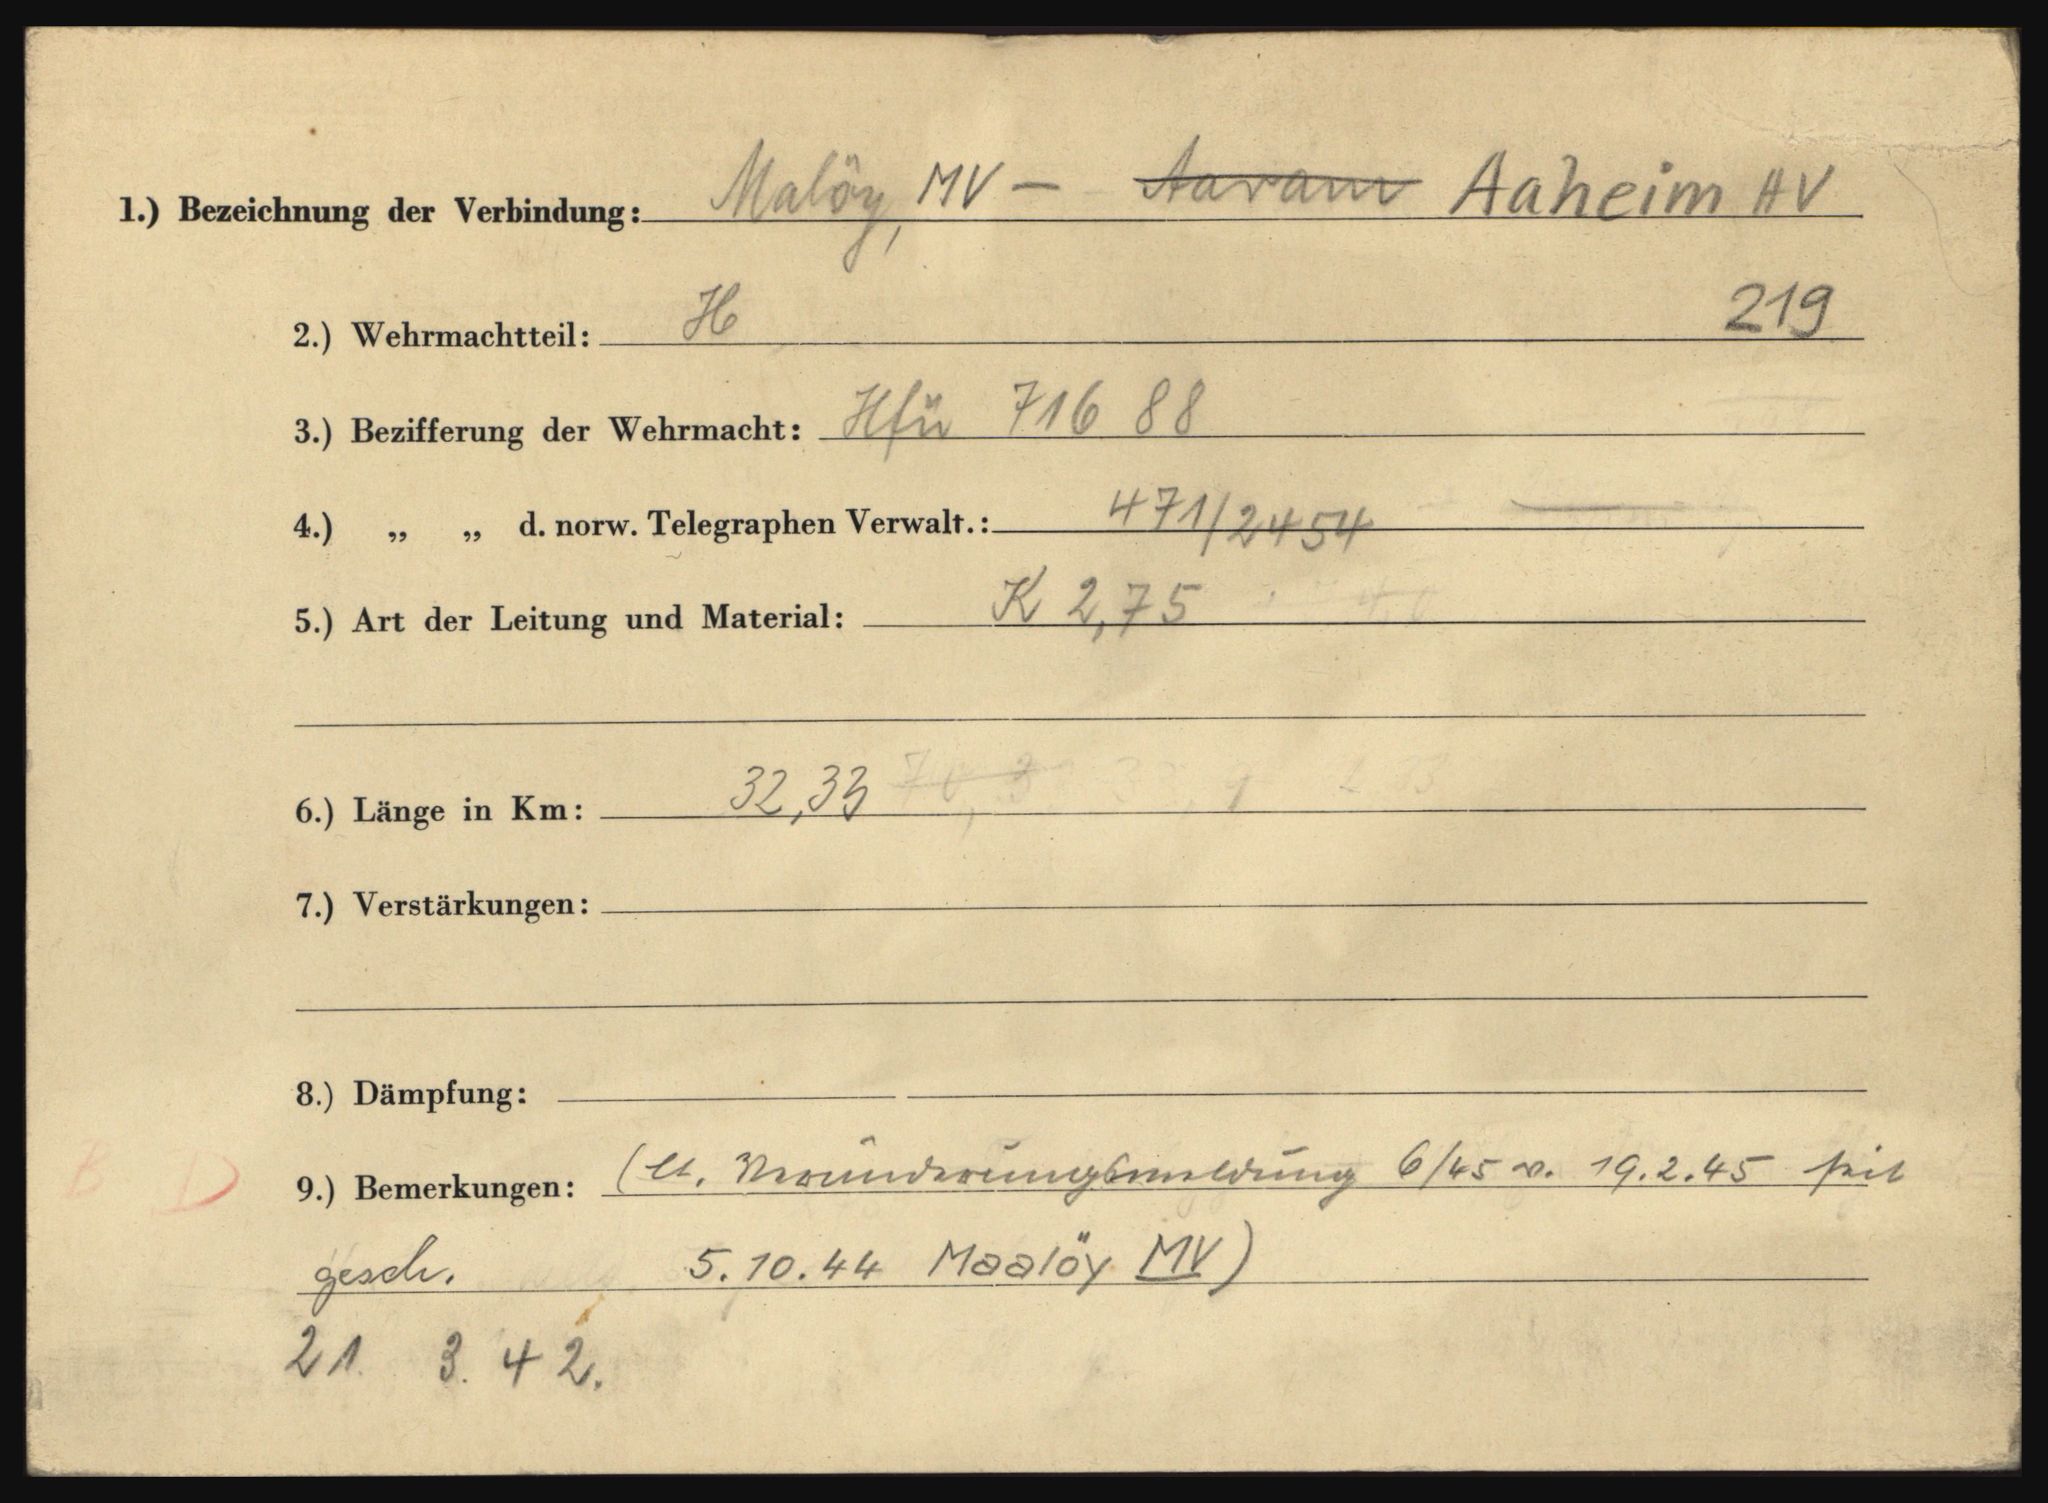 1.) Bezeichnung der Verbindung: Malöy, MV – Aaram Aaheim HV
2.) Wehrmachtteil: H 219
3.) Bezifferung der Wehrmacht: Hfü 716 88
4.) „ „ d. norw. Telegraphen Verwalt.: 471/2454
5.) Art der Leitung und Material: K 2,75
6.) Länge in Km: 32,33
7.) Verstärkungen:
8.) Dämpfung:
B D
9.) Bemerkungen: (lt. Veränderungsmeldung 6/45 v. 19.2.45 seit
gesch. 5.10.44 Maalöy MV)
21. 3. 42.